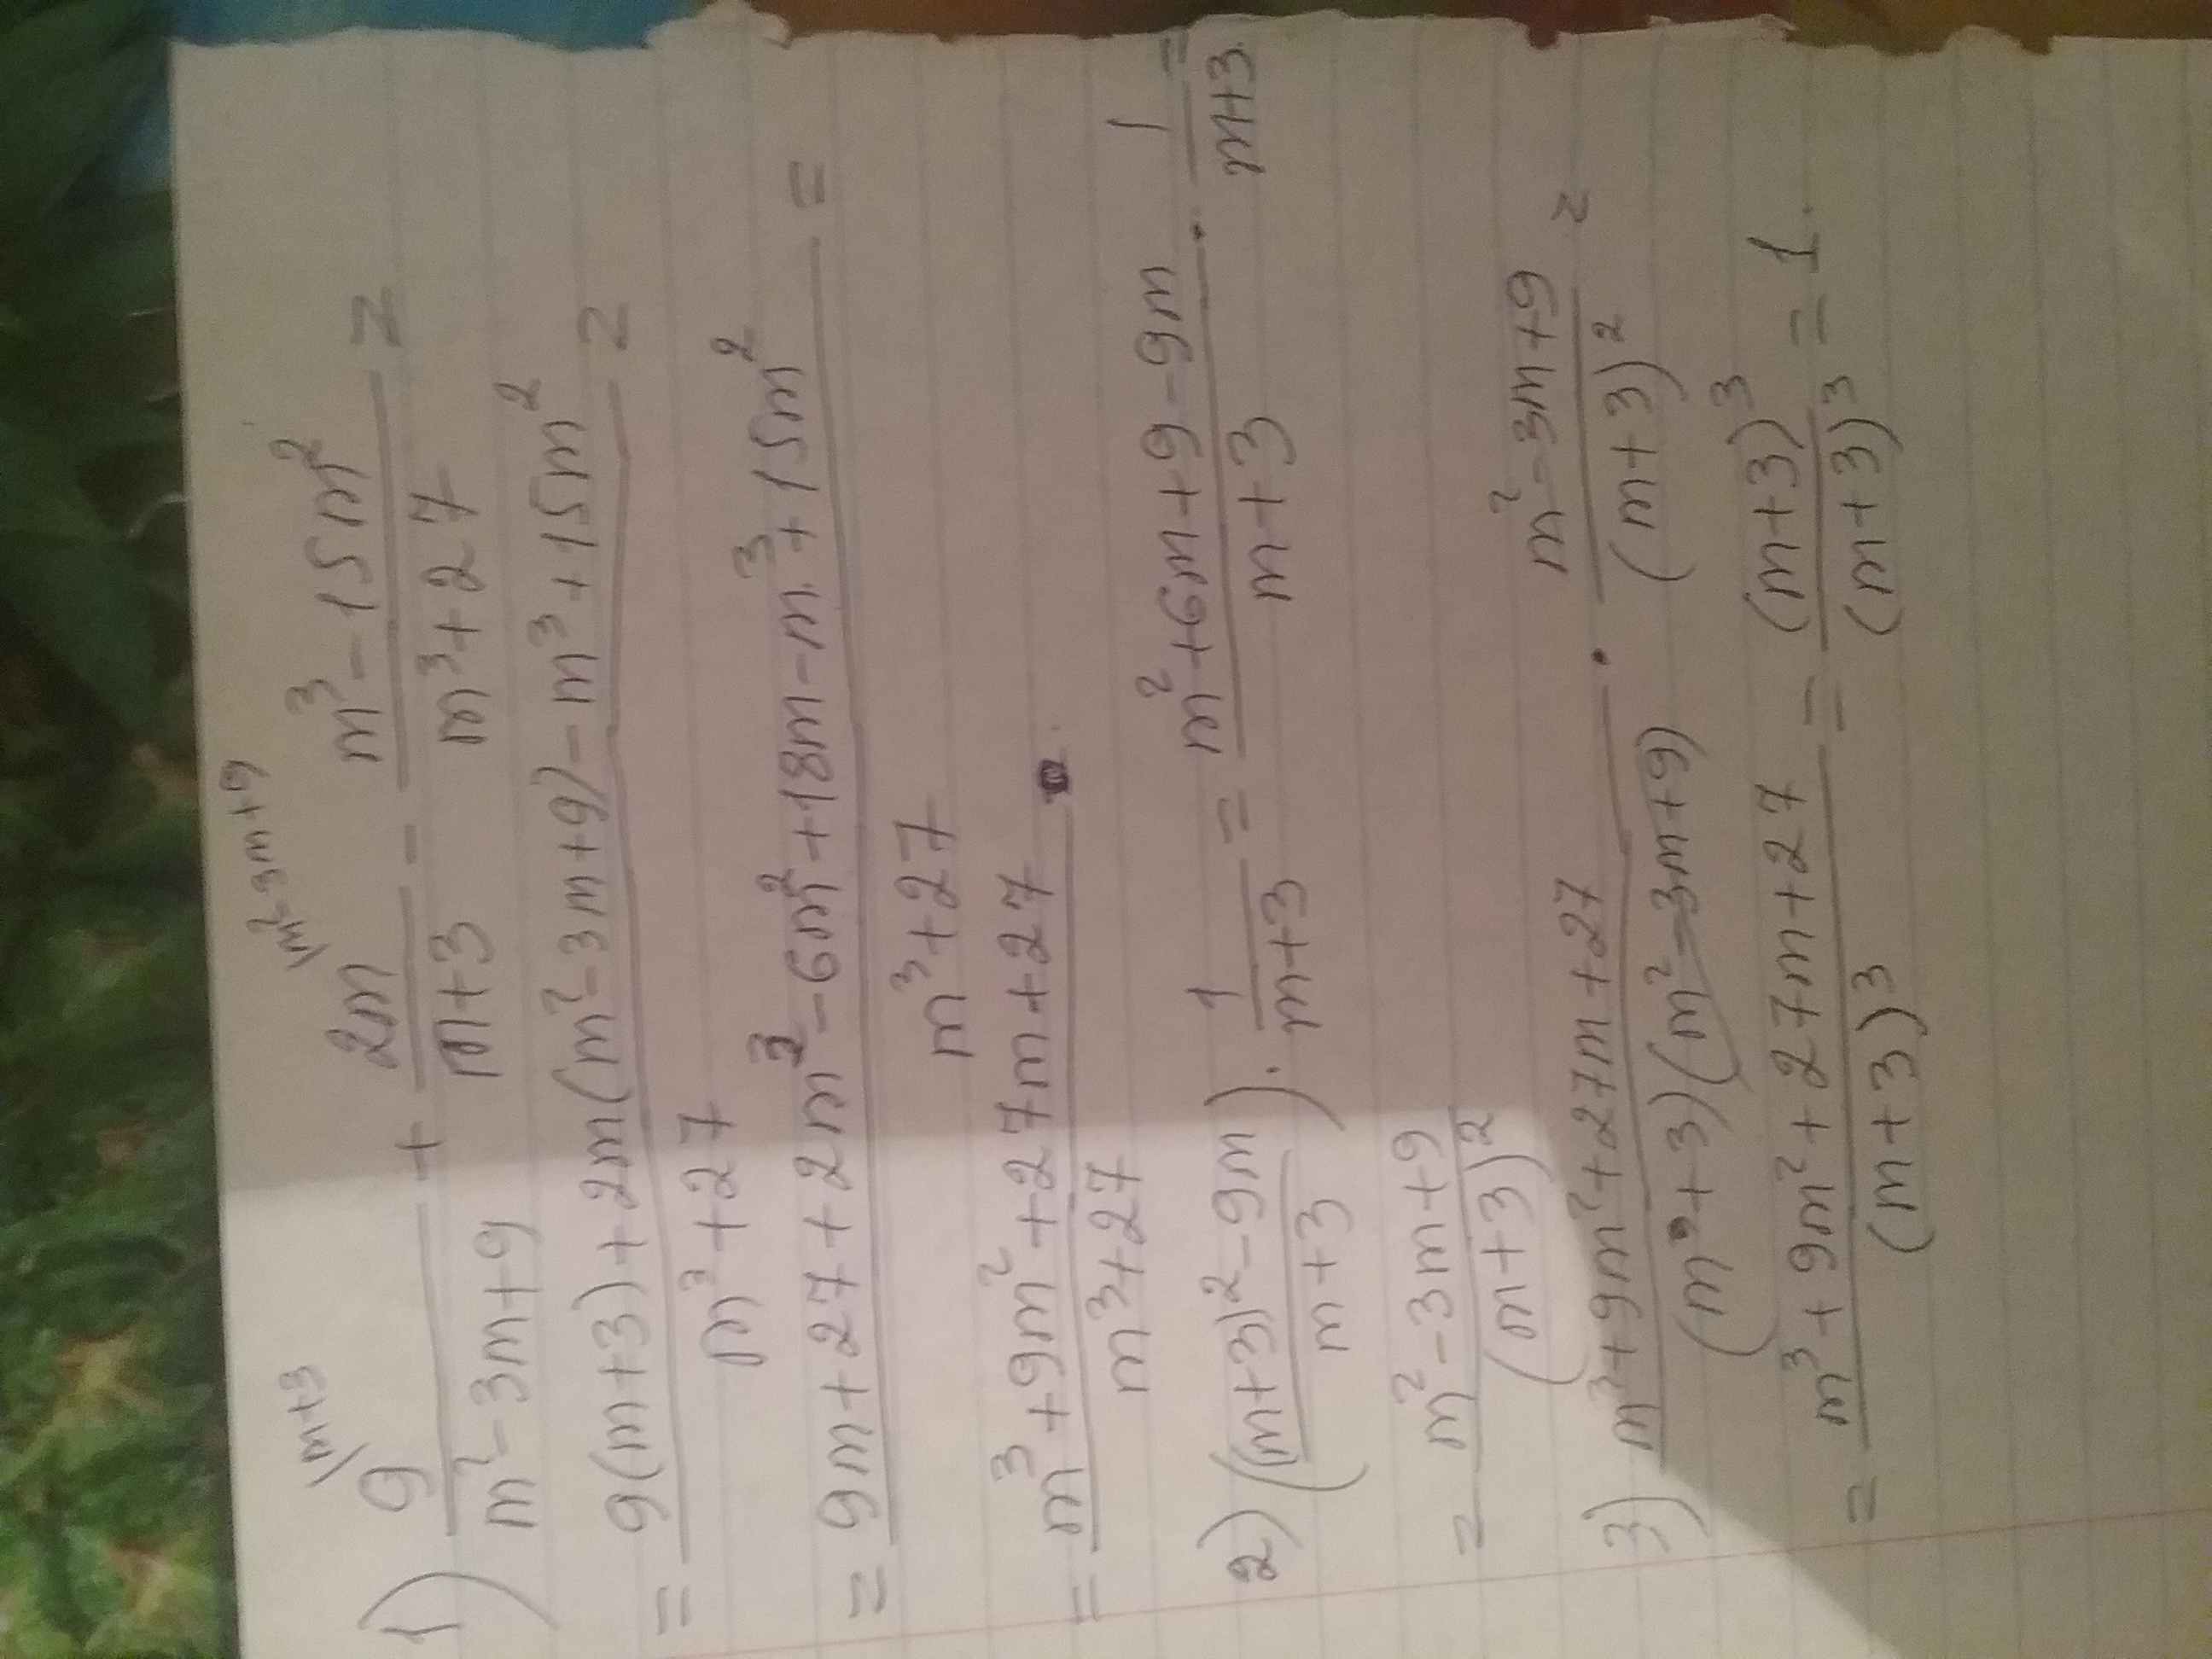 \m+3 \m²-3m+9
1) 9/(m²-3m+9) + 2m/(m+3) - (m³-15m²)/(m³+27) =
= (9(m+3)+2m(m²-3m+9)-m³+15m²)/(m³+27) =
= (9m+27+2m³-6m²+18m-m³+15m²)/(m³+27) =
= (m³+9m²+27m+27)/(m³+27).
2) ((m+3)²-9m)/(m+3)) · 1/(m+3) = (m²+6m+9-9m)/(m+3) · 1/(m+3) =
= (m²-3m+9)/(m+3)²
3) (m³+9m²+27m+27)/((m+3)(m²-3m+9)) · (m²-3m+9)/(m+3)² =
= (m³+9m²+27m+27)/(m+3)³ = (m+3)³/(m+3)³ = 1.